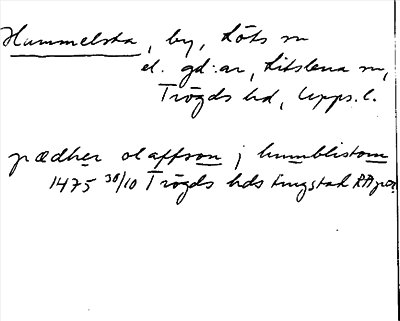 Hummelsta, by, Löts sn
el. gd:ar, Litslena sn,
Trögds hd, Upps. l.
pædher olaffson j humblistom
1475 30/10 Trögds hds tingstad RAp or.